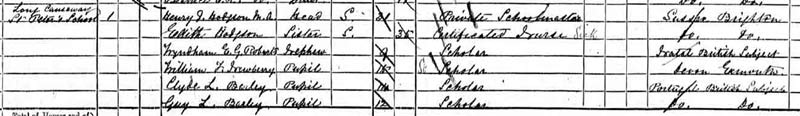 Do. Do.
Long Causeway
St Peter's School 1 Henry J. Hodgson M.A Head S. 31 Private Schoolmaster Sussex Brighton
Edith Hodgson Sister S. 35 Certificated Nurse Sick Do. Do.
Wyndham E. G. Roberts Nephew 9 Scholar British Subject
William F. Drewberry Pupil Scholar Devon Exmouth
Clyde L. Bexley Pupil 14 Scholar Portugal British Subject
Guy L. Bexley Pupil 12 Scholar Do. Do.